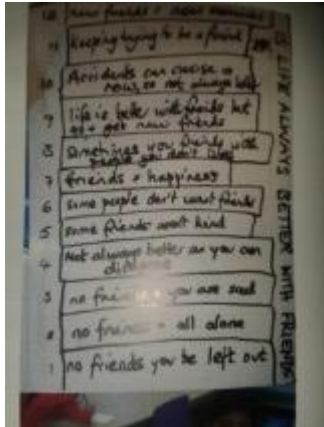 12 new friends = new memories
11 Keeping trying to be a friend
10 Accidents can
now, so not always
9 life is better with friends but
go + get new friends
8 Sometimes you friends with
people you don't like
7 friends = happiness
6 some people don't want friends
5 some friends aren't kind
4 Not always better as you can
3 no friends = you are sad
2 no friends = all alone
1 no friends you be left out
IS LIFE ALWAYS BETTER WITH FRIENDS